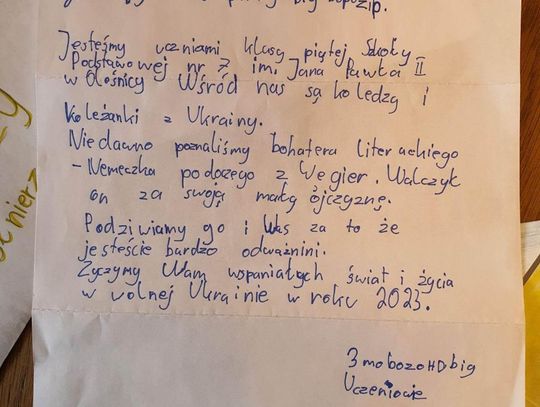 Jesteśmy uczniami klasy piątej Szkoły
Podstawowej nr 7 im. Jana Pawła II
w Oleśnicy Wśród nas są koledzy i
koleżanki z Ukrainy.
Niedawno poznaliśmy bohatera literackiego
- Nemeczka podozego z Węgier. Walczył
on za swoją małą ojczyznę.
Podziwiamy go i Was za to że
jesteście bardzo odważnini.
Życzymy Wam wspaniałych świat i życia
w wolnej Ukrainie w roku 2023.
3mobozoHDbig
Uczeniowie